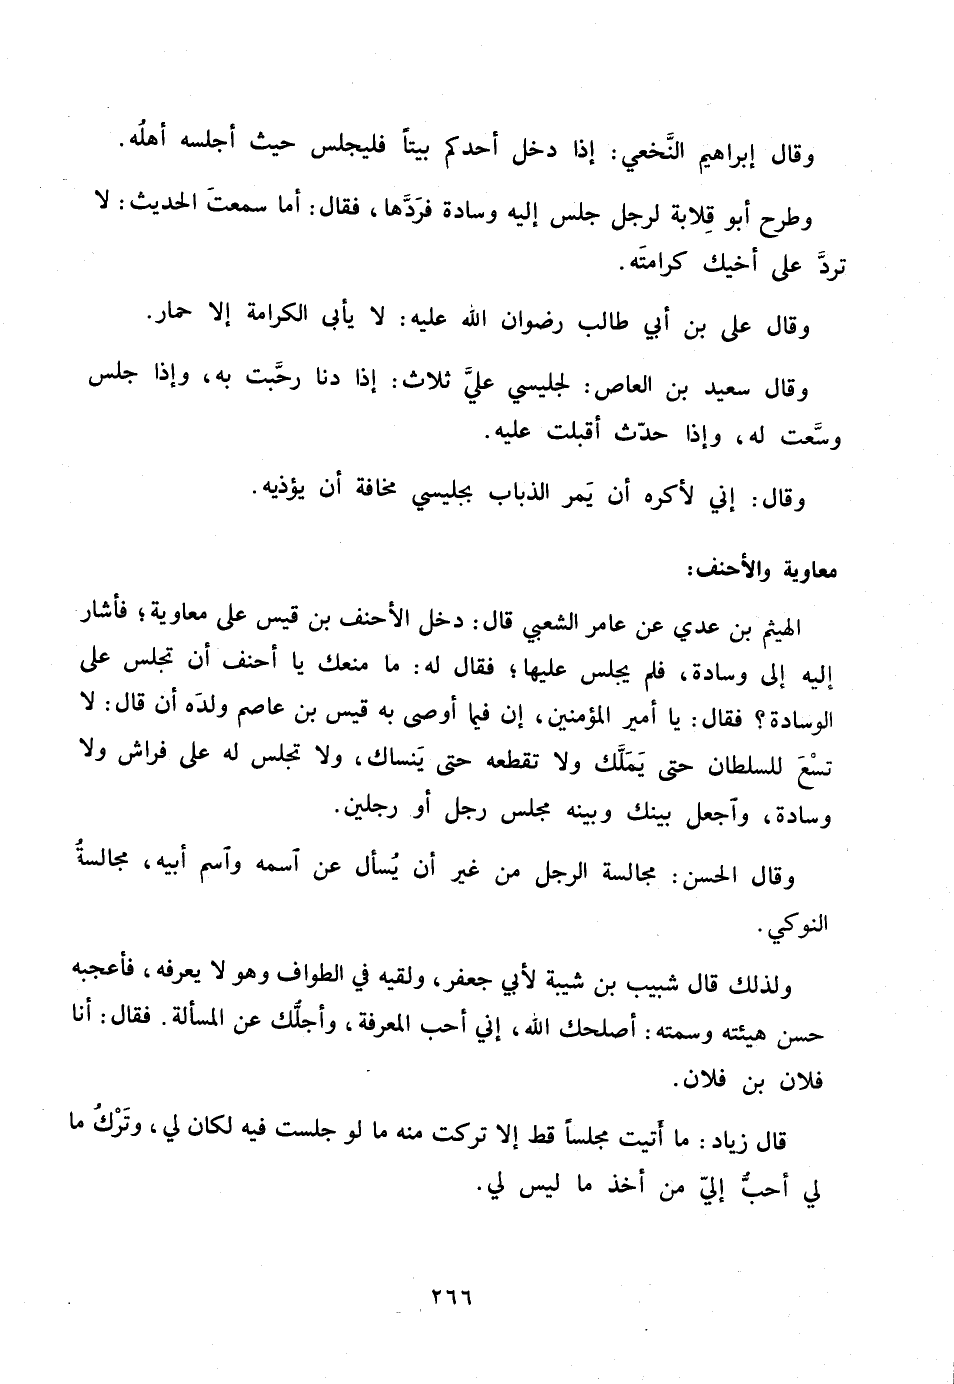 وقال إبراهيم النَّخعي: إذا دخل أحدكم بيتاً فليجلس حيث أجلسه أهلُه.
وطرح أبو قِلابة لرجل جلس إليه وسادة فرَدَّها، فقال: أما سمعتَ الحديث: لا
تردَّ على أخيك كرامتَه.
وقال على بن أبي طالب رضوان الله عليه: لا يأبى الكرامة إلا حمار.
وقال سعيد بن العاص: لجليسي عليَّ ثلاث: إذا دنا رحَّبت به، وإذا جلس
وسَّعت له، وإذا حدّث أقبلت عليه.
وقال: إني لأكره أن يَمر الذباب بجليسي مخافة أن يؤذيه.
معاوية والأحنف:
الهيثم بن عدي عن عامر الشعبي قال: دخل الأحنف بن قيس على معاوية؛ فأشار
إليه إلى وسادة، فلم يجلس عليها؛ فقال له: ما منعك يا أحنف أن تجلس على
الوسادة؟ فقال: يا أمير المؤمنين، إن فيما أوصى به قيس بن عاصم ولدَه أن قال: لا
تسْعَ للسلطان حتى يَمَلَّك ولا تقطعه حتى يَنساك، ولا تجلس له على فراش ولا
وسادة، وٱجعل بينك وبينه مجلس رجل أو رجلين.
وقال الحسن: مجالسة الرجل من غير أن يُسأل عن ٱسمه وٱسم أبيه، مجالسةُ
النوكي.
ولذلك قال شبيب بن شيبة لأبي جعفر، ولقيه في الطواف وهو لا يعرفه، فأعجبه
حسن هيئته وسمته: أصلحك الله، إني أحب المعرفة، وأجلُّك عن المسألة. فقال: أنا
فلان بن فلان.
قال زياد: ما أَتيت مجلساً قط إلا تركت منه ما لو جلست فيه لكان لي، وتَرْكُ ما
لي أحبُّ إليّ من أخذ ما ليس لي.
٢٦٦